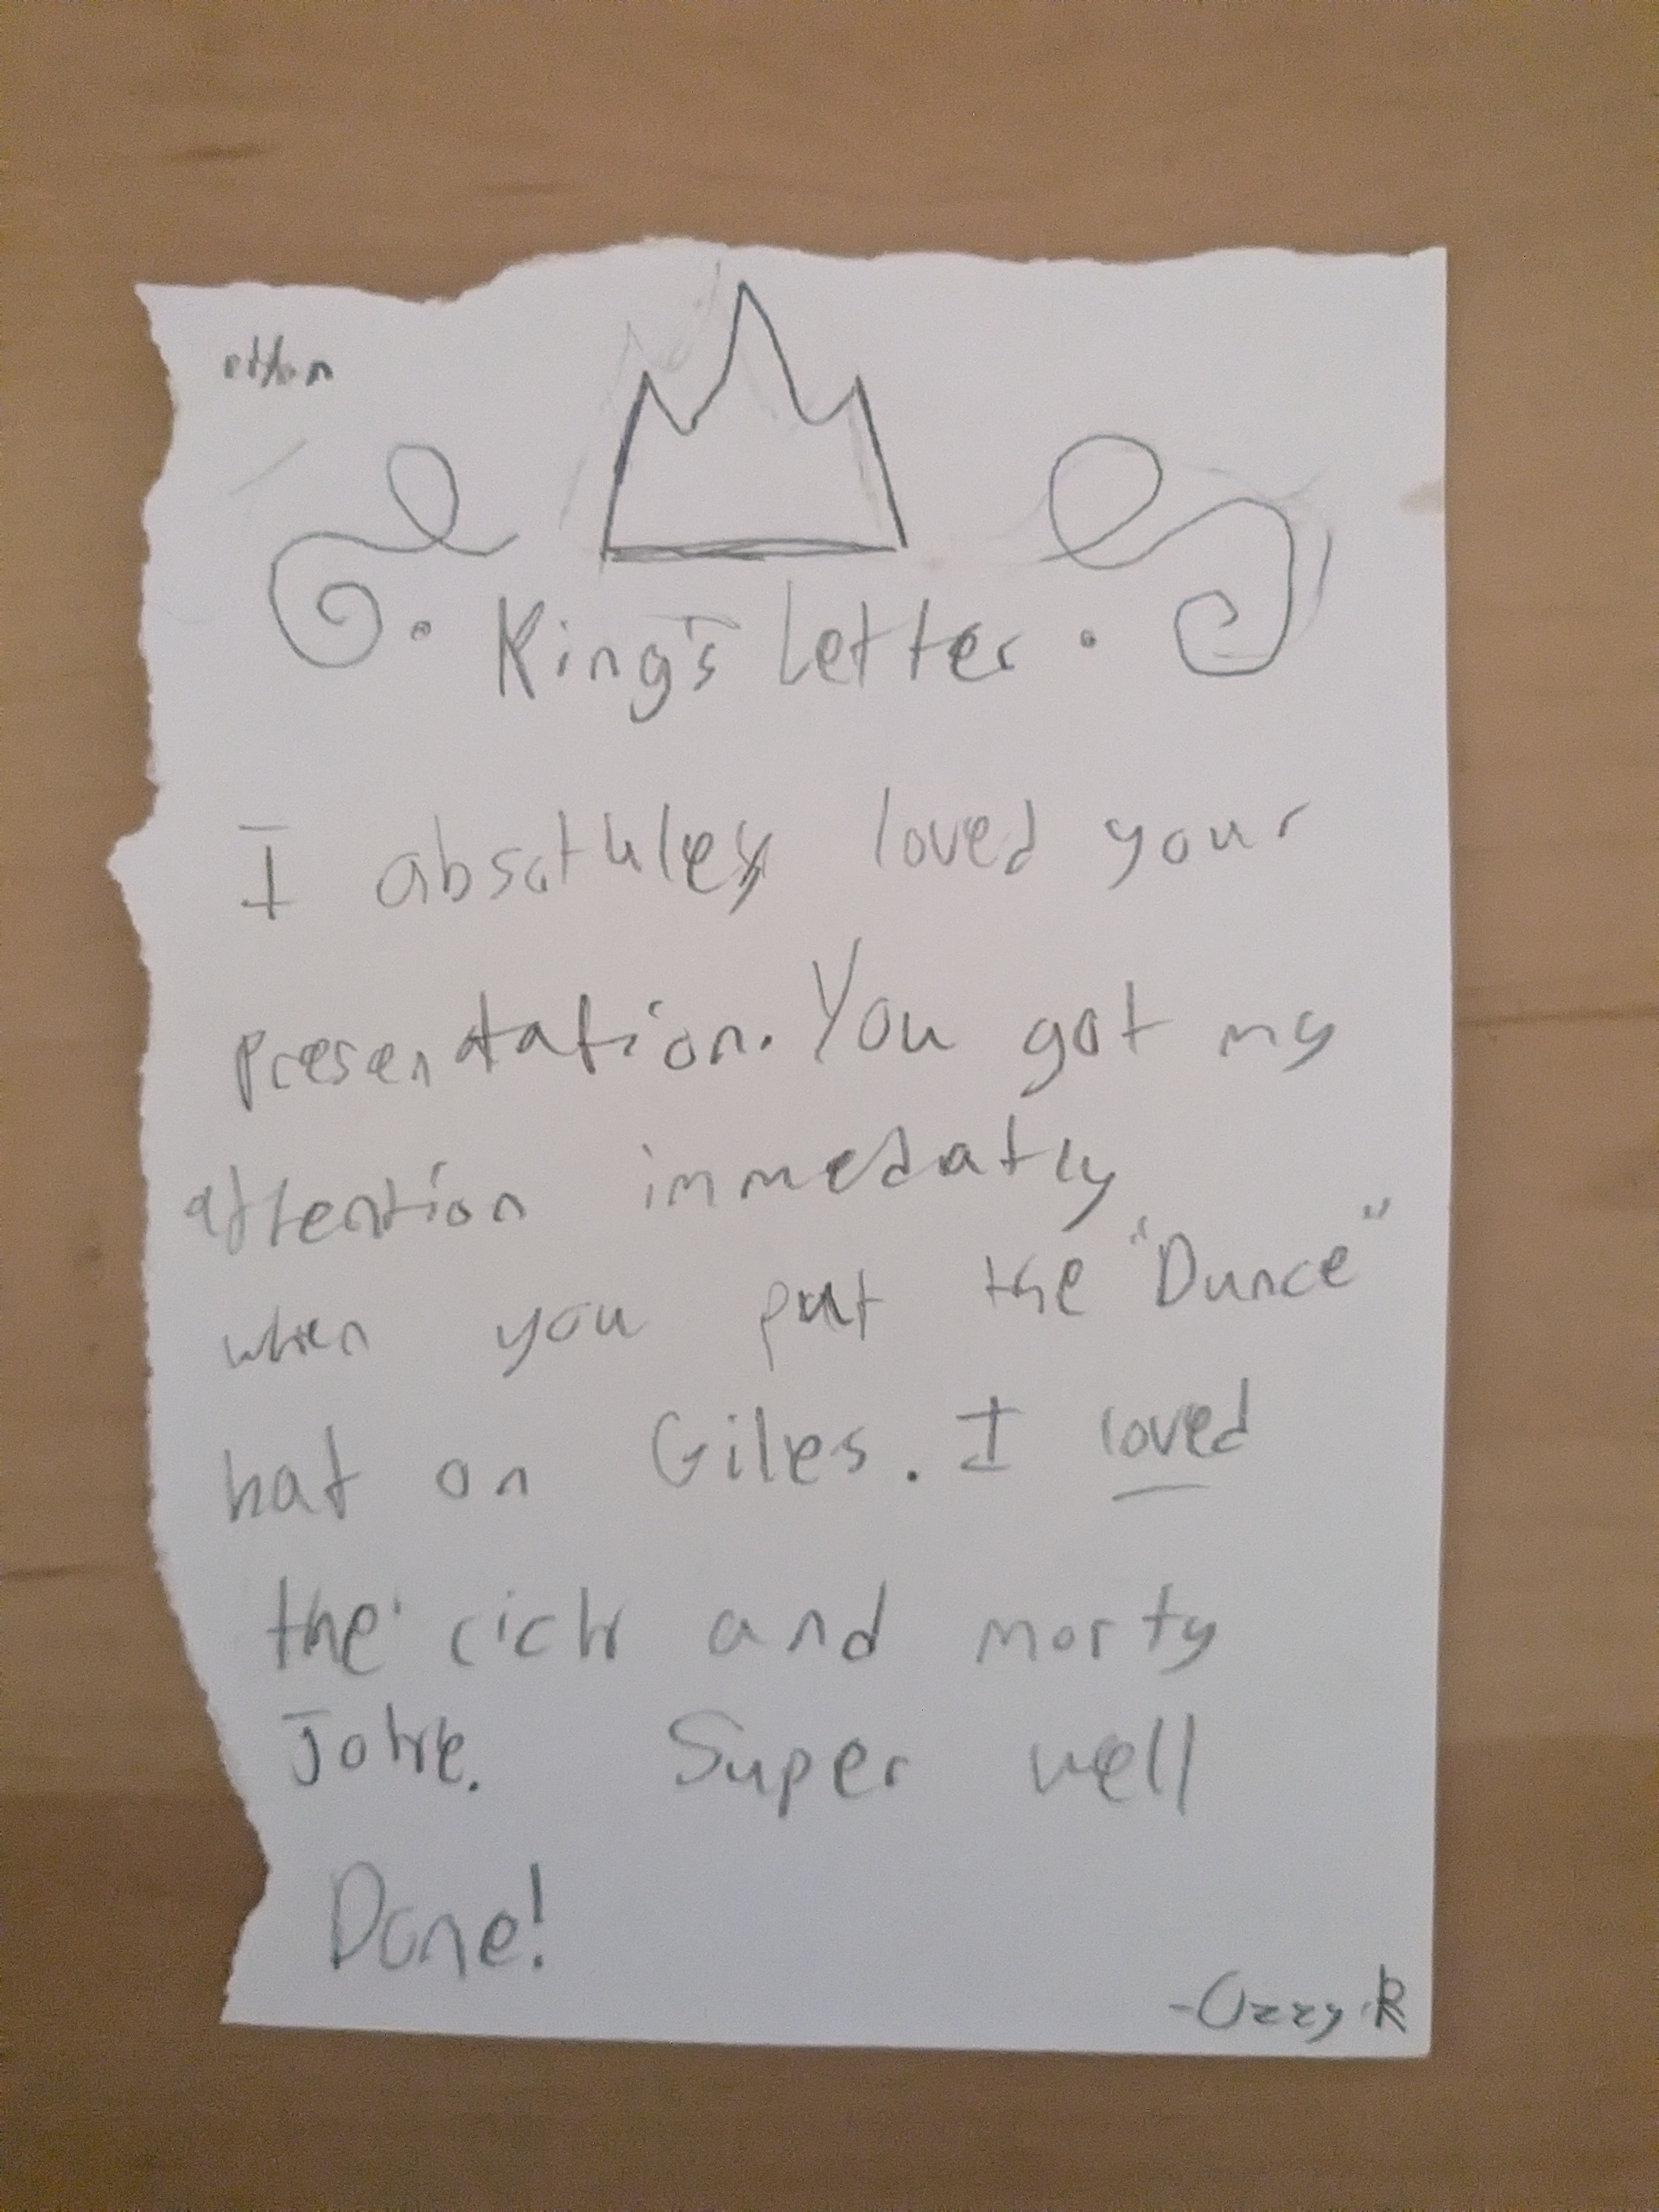 King's Letter
I absothley loved your
presentation. You got my
attention immedatly
when you put the "Dunce"
hat on Giles. I loved
the rick and morty
Joke. Super well
Done!
-Ozzy R